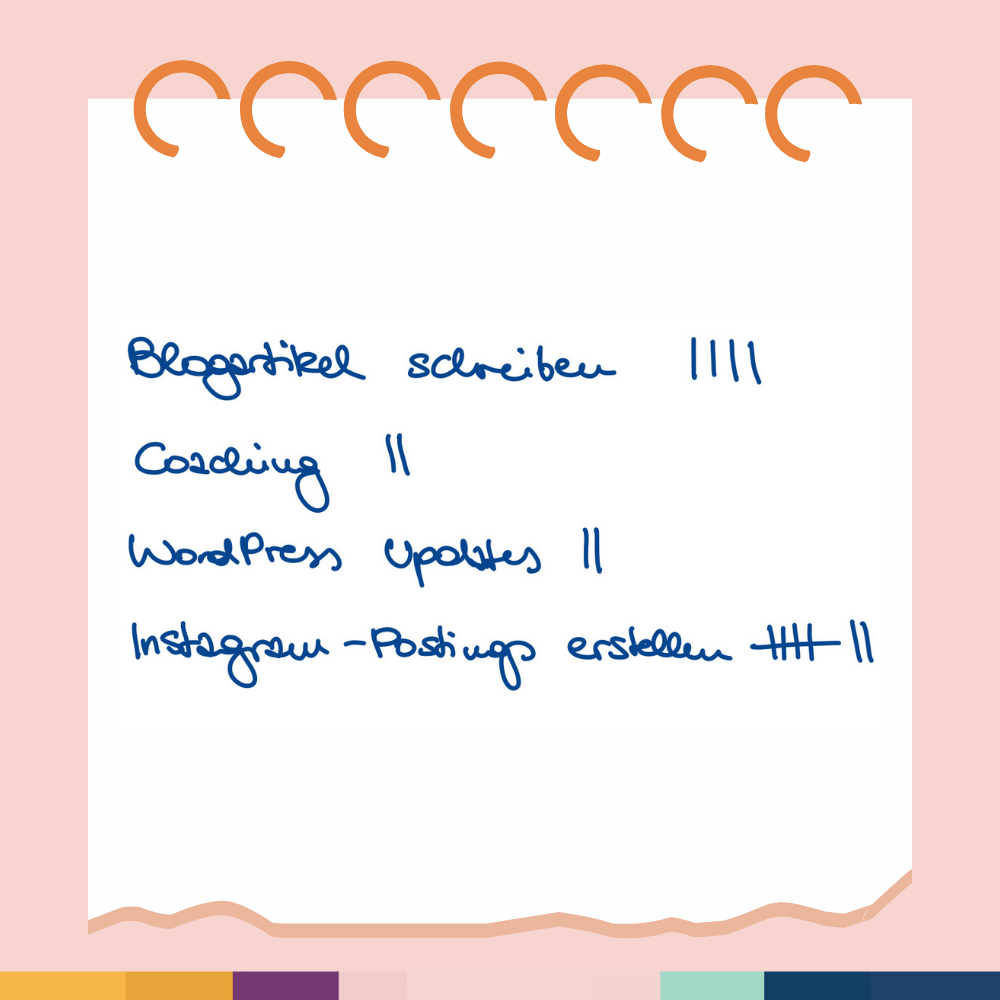 Blogartikel schreiben ||||
Coaching ||
WordPress Updates ||
Instagram-Postings erstellen 卌 ||